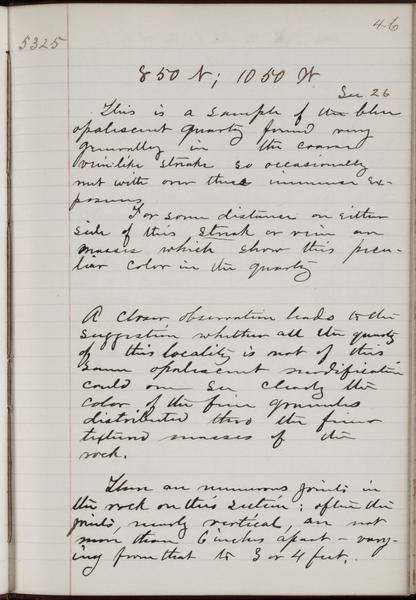 46
5325
850 N; 1050 W
Sec 26
This is a sample of the blue
opaliscent quartz found very
generally in the coarse
vein-like streaks so occasionally
met with over these immense ex-
posures
For some distance on either
side of this streak or vein are
masses which show this pecu-
liar color in the quartz
A closer observation leads to the
suggestion whether all the quartz
of this locality is not of this
same opaliscent modification
could one see clearly the
color of the fine granules
distributed thro the finer
textured masses of the
rock.
There are numerous joints in
the rock on this section; often the
joints, nearly vertical, are not
more than 6 inches apart - vary-
ing from that to 3 or 4 feet.